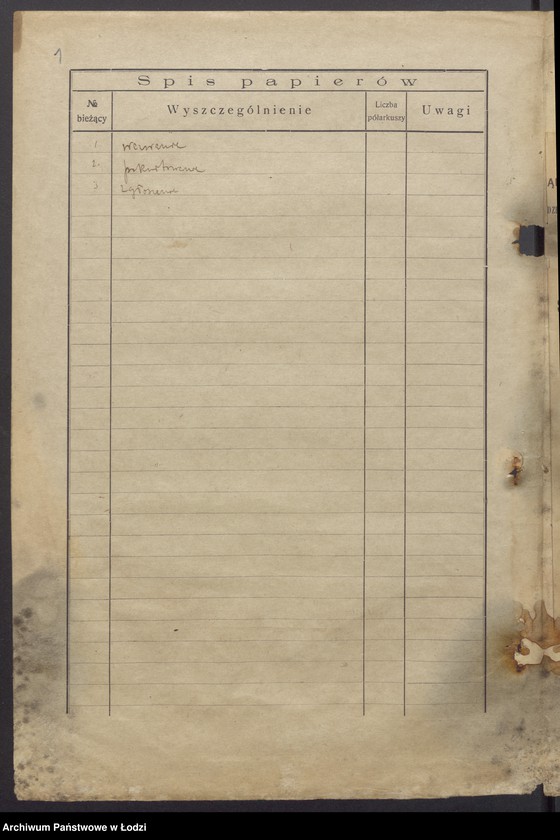 1
Spis papierów
№ bieżący Wyszczególnienie Liczba półarkuszy Uwagi
1 wezwanie
2
3 zgłoszenie
Archiwum Państwowe w Łodzi